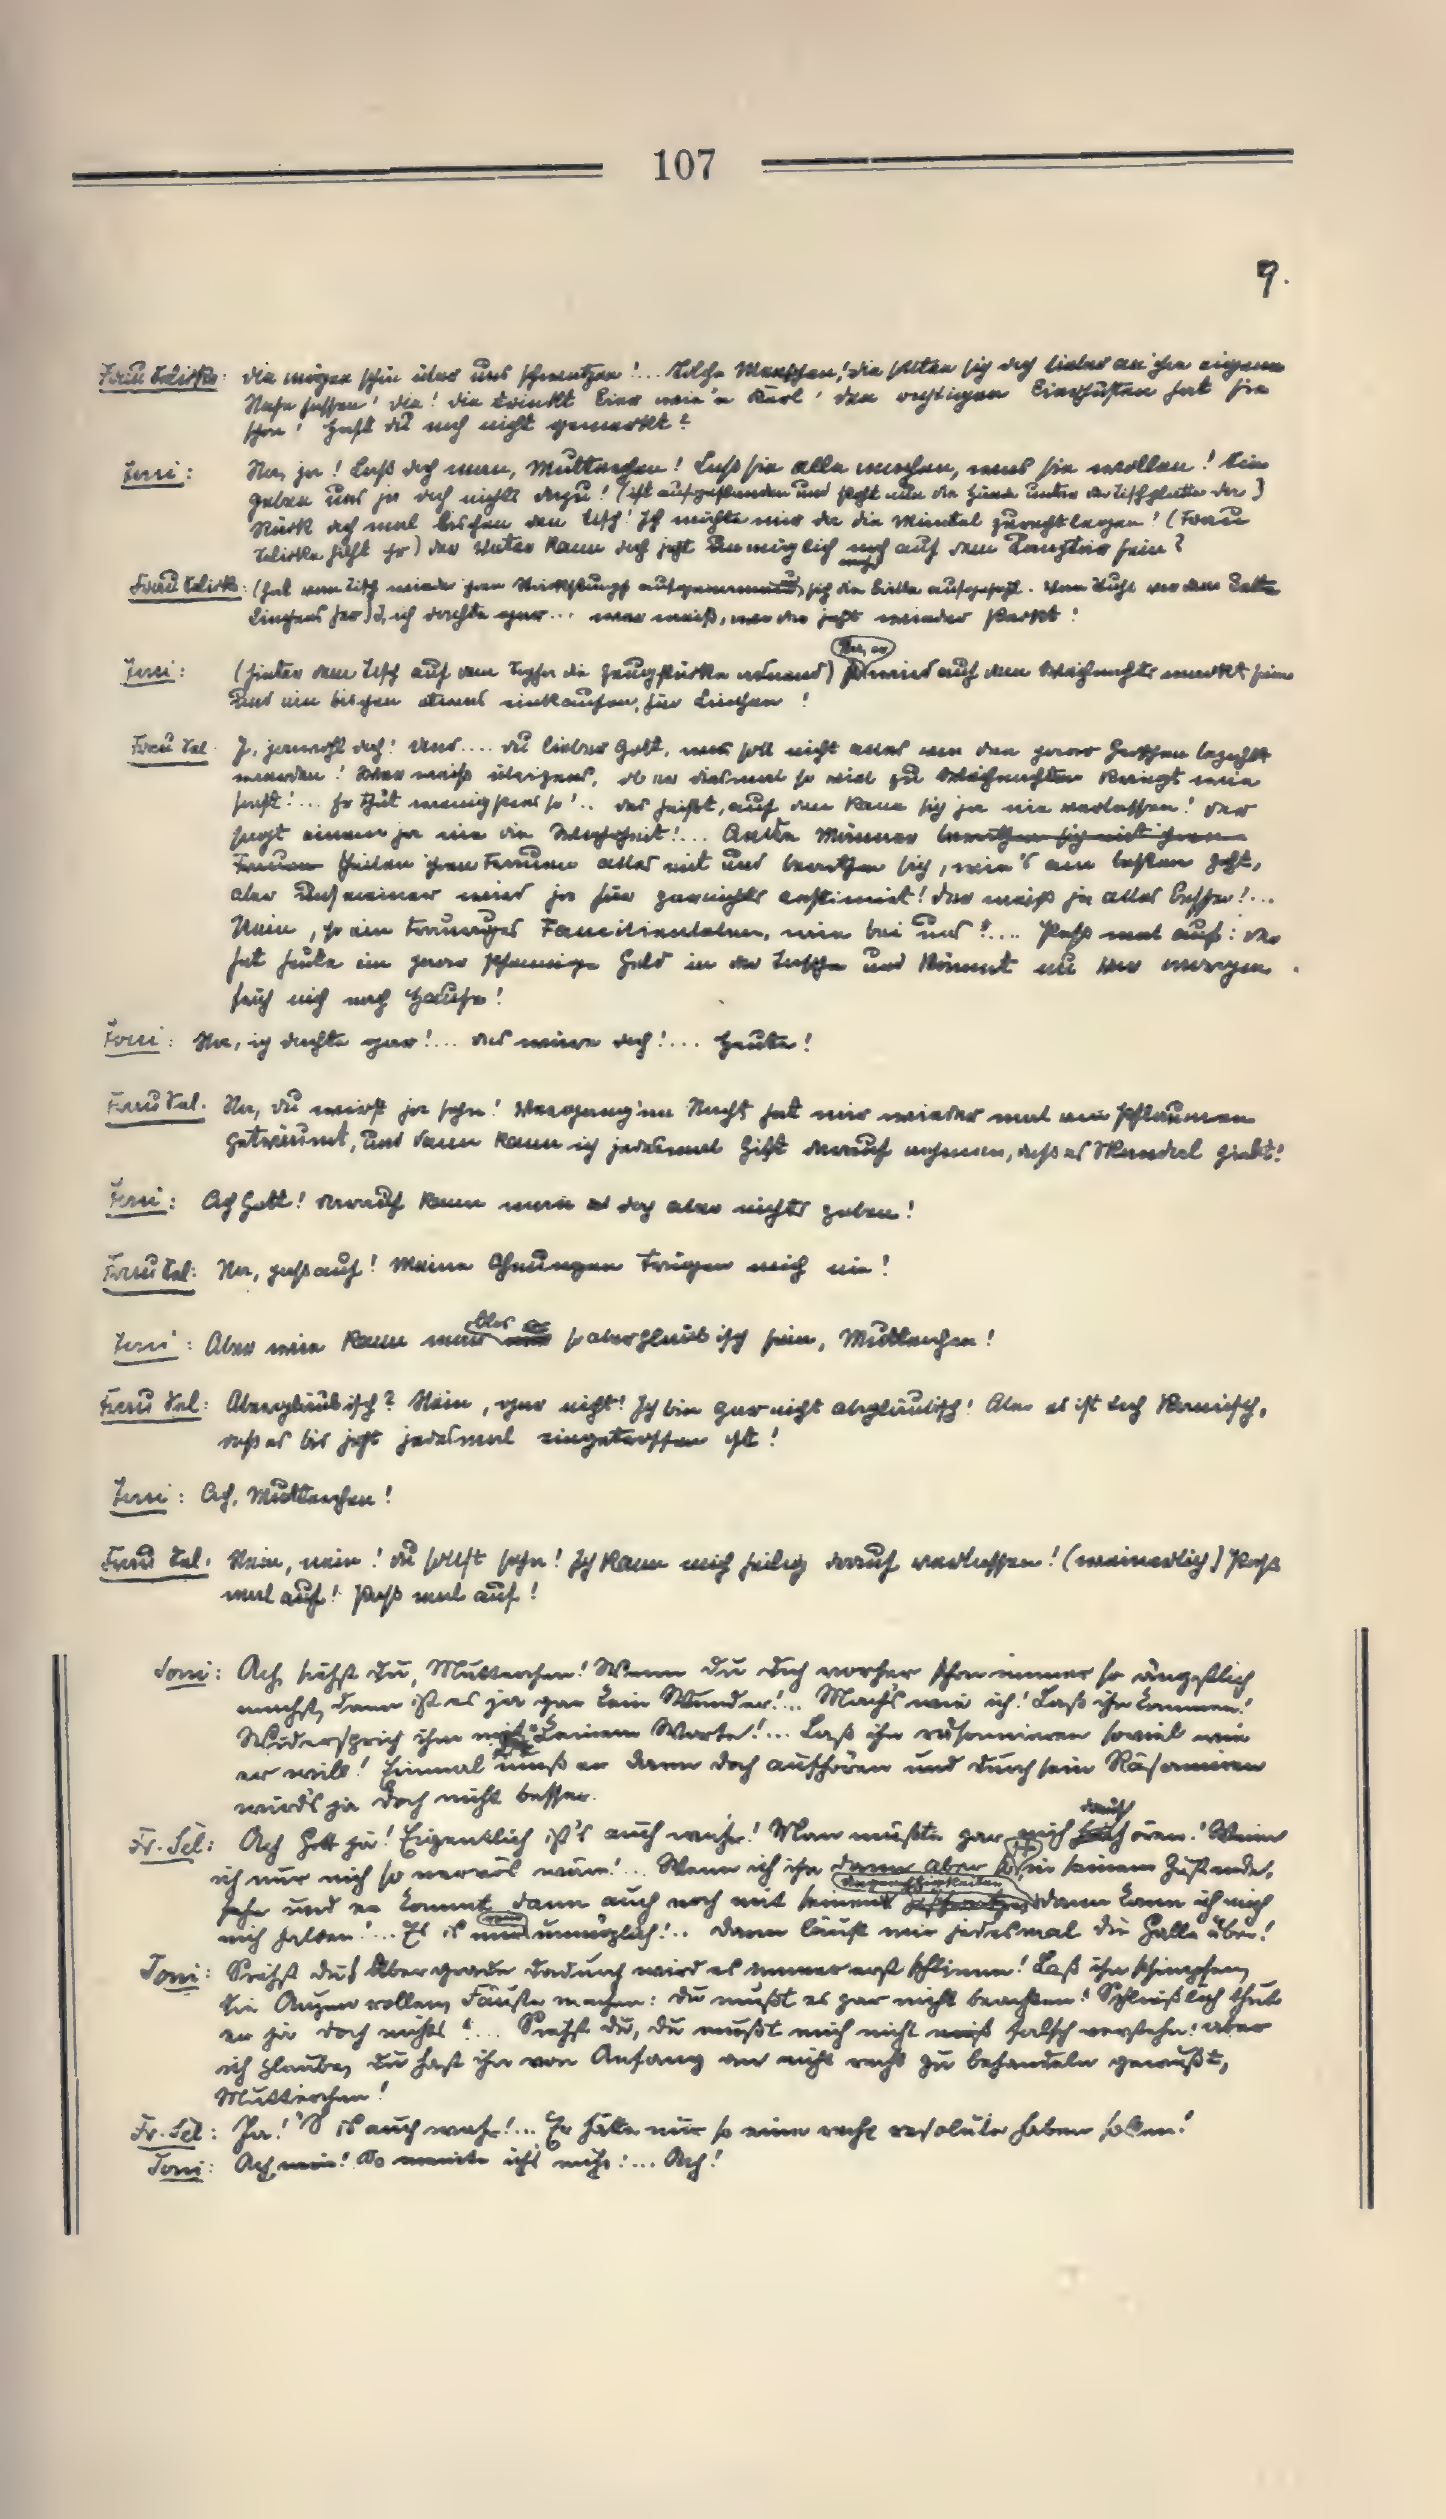 107
9.
Frau Selicke: Die mögen schön über uns schwatzen!... Solche Menschen! Die sollten sich doch lieber an ihre eigene
Nase fassen! Die! Die trinkt Bier wie'n Kerl! Den richtigen Bierhusten hat sie
schon! Hast du noch nicht gemerkt?
Toni: Na, ja! Laß doch man, Mutterchen! Laß sie alle machen, was sie wollen! Sie
geben uns ja doch nichts dazu! (ist aufgestanden und steht nun die Hände unter der Tischplatte da)
Rück doch mal bischen den Tisch! Ich möchte mir da die Mäntel zurechtlegen! (Frau
Selicke hilft ihr) Der Vater kann doch jetzt unmöglich noch auf dem Comptoir sein?
Frau Selick: (hat vom Tisch wieder ihren Strickstrumpf aufgenommen und sich die Brille aufgesetzt. Vom Stuhl vor dem Bette
Linchens her) J, ich dachte gar... wer weiß, wo der jetzt wieder steckt!
Na, er
Toni: (hinter dem Tisch auf dem Sopha die Zeugstücke ordnend) wird auf dem Weihnachtsmarkt sein
und ein bischen etwas einkaufen, für Linchen!
Frau Sel. J, jawohl doch! Und.... du lieber Gott, was soll nicht alles von den paar Groschen bezahlt
werden! Wer weiß übrigens, ob er diesmal so viel zu Weihnachten kriegt wie
sonst!... Er thut wenigstens so!.. Das heißt, auf den kann sich ja nie verlassen! Der
sagt einem ja nie die Wahrheit!... Andre Männer berathen sich mit ihren
Frauen theilen ihren Frauen alles mit und berathen sich, wie's am besten geht,
aber unsereiner wird ja für garnichts ästimirt! Der weiß ja alles besser!...
Nein, so ein trauriges Familienleben, wie bei uns!.... Paß mal auf: der
hat heute ein paar Pfennige Geld in der Tasche und kommt nu vor morgen
früh nich nach Hause!
Toni: Na, ich dachte gar!... Das wäre doch!... Heute!
Frau Sel. Na, du wirst ja sehn! Vergang'ne Nacht hat mir wieder mal von Pflaumen
geträumt, und dann kann ich jedesmal Gift darauf nehmen, daß es Skandal giebt!
Toni: Ach Gott! Darauf kann man doch aber nichts geben!
Frau Sel: Na, paß auf! Meine Ahnungen trügen mich nie!
blos
Toni: Aber wie kann man so abergläubisch sein, Mutterchen!
Frau Sel: Abergläubisch? Nein, gar nicht! Ich bin gar nicht abergläubisch! Aber es ist doch komisch,
daß es bis jetzt jedesmal eingetroffen ist!
Toni: Ach, Mutterchen!
Frau Sel. Nein, nein! Du sollst sehn! Ich kann mich heilig darauf verlassen! (weinerlich) Paß
mal auf! Paß mal auf!
Toni: Ach, siehst du, Mutterchen! Wenn du dich vorher schon immer so ängstlich
machst, dann ist es ja gar kein Wunder!... Mach's wie ich! Laß ihn kommen!
Widersprich ihm mit keinem Worte!... Laß ihn räsonniren soviel wie
er will! Einmal muß er dann doch aufhören und durch sein Räsonniren
wird's ja doch nicht besser.
drauf
Fr. Sel: Ach Gott ja! Eigentlich ist's auch wahr! Man müßte gar nich hören! Wenn
ich nur nich so nervös wäre!... Wenn ich ihn dann aber in seinem Zustande,
sehe und er kommt dann auch noch mit seinen dann kann ich mich
nich halten!... Es is rein unmöglich!.. Dann läuft mir jedesmal die Galle über!
Toni: Siehst du! Aber grade dadurch wird es immer erst schlimm! Laß ihn schimpfen,
die Augen rollen, Fäuste machen: du mußt es gar nicht beachten! Schließlich thut
er ja doch nichts!... Siehst du, du mußt mich nicht falsch verstehn: aber
ich glaube, du hast ihn von Anfang an nicht recht zu behandeln gewußt,
Mutterchen!
Fr. Sel: Ja! 'S is auch wahr!... Er hätte nur so eine recht resolute haben sollen!
Toni: Ach, nein! So meinte ich's nicht!... Ach!